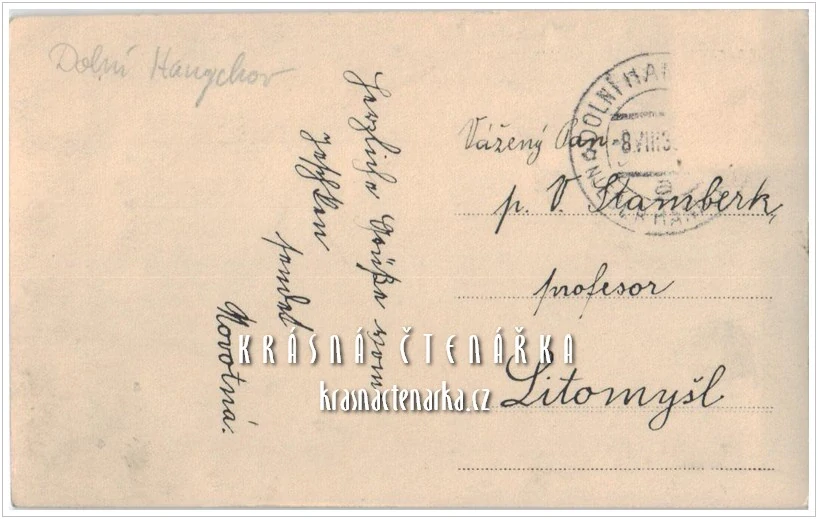 Dolní Hangchov
Herzliche Grüße vom
Jeschken
sendet
Novotná.
DOLNÍ HA
8.VIII.3
UNTER HA
Vážený Pan
p. V. Štamberk,
profesor
Litomyšl
KRÁSNÁ ČTENÁŘKA
krasnactenarka.cz